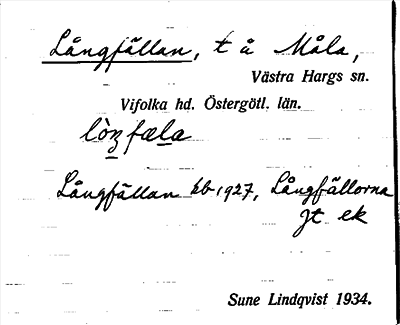 Långfällan, t å Måla,
Västra Hargs sn.
Vifolka hd. Östergötl. län.
Långfällan kb 1927, Långfällorna
Jt ek
Sune Lindqvist 1934.